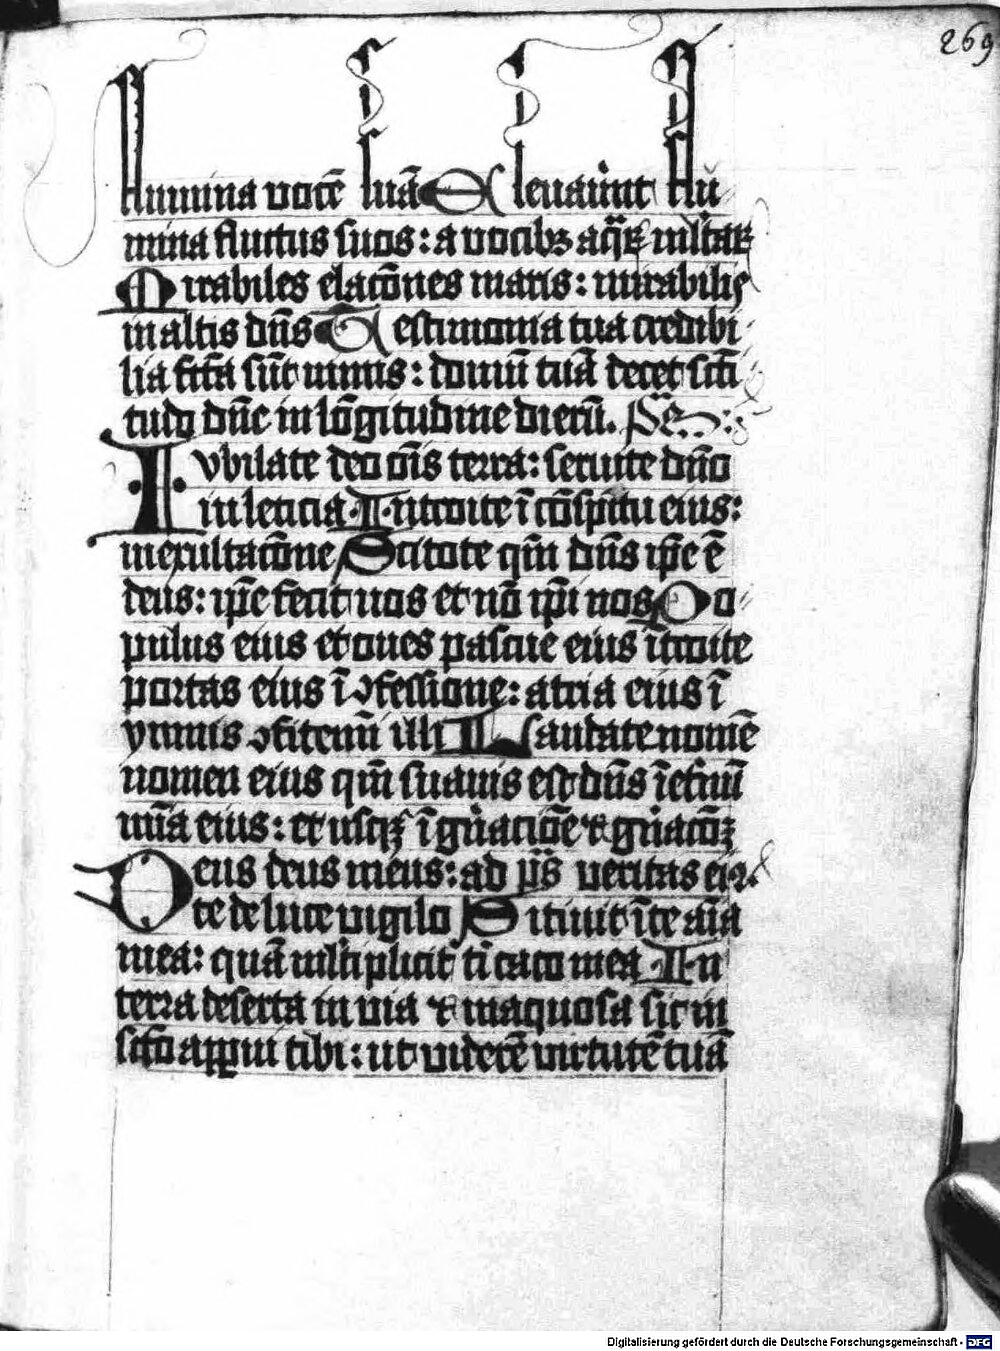 269
flumina vocē suā Eleuaūnt flu
mina fluctus suos : a vocibꝫ aq̄ꝝ ml̄taꝝ
Mirabiles elacōnes maris : mirabilis
in altis dn̄s Testimonia tua credibi
lia fcā sūt nimis : domū tuā decet scī
tudo dn̄e in lōgitudine dierū. Ps̄
Ivbilate deo om̄s terra : seruite dn̄o
in leticia Introite ī cōspc̄tu eius :
in exultacōne Scitote qm̄ dn̄s ip̄e ē
deus : ip̄e fecit nos et nō ip̄i nos Po
pulus eius et oues pascue eius ītroite
portas eius ī ꝯfessione : atria eius ī
ymnis ꝯfitemī illi Laudate nomē
nomen eius qm̄ suauis est dn̄s ī et̄nū
mīa eius : et usqꝫ ī gn̄aciōe ⁊ gn̄acōꝫ
Deus deus meus : ad
te de luce vigilo Sitiuit ī te aīa
mea : quā ml̄tiplicit̄ tͥ caro mea In
terra deserta in uia ⁊ inaquosa sic in
sc̄o apparui tibi : ut viderē virtutē tuā
Digitalisierung gefördert durch die Deutsche Forschungsgemeinschaft - DFG